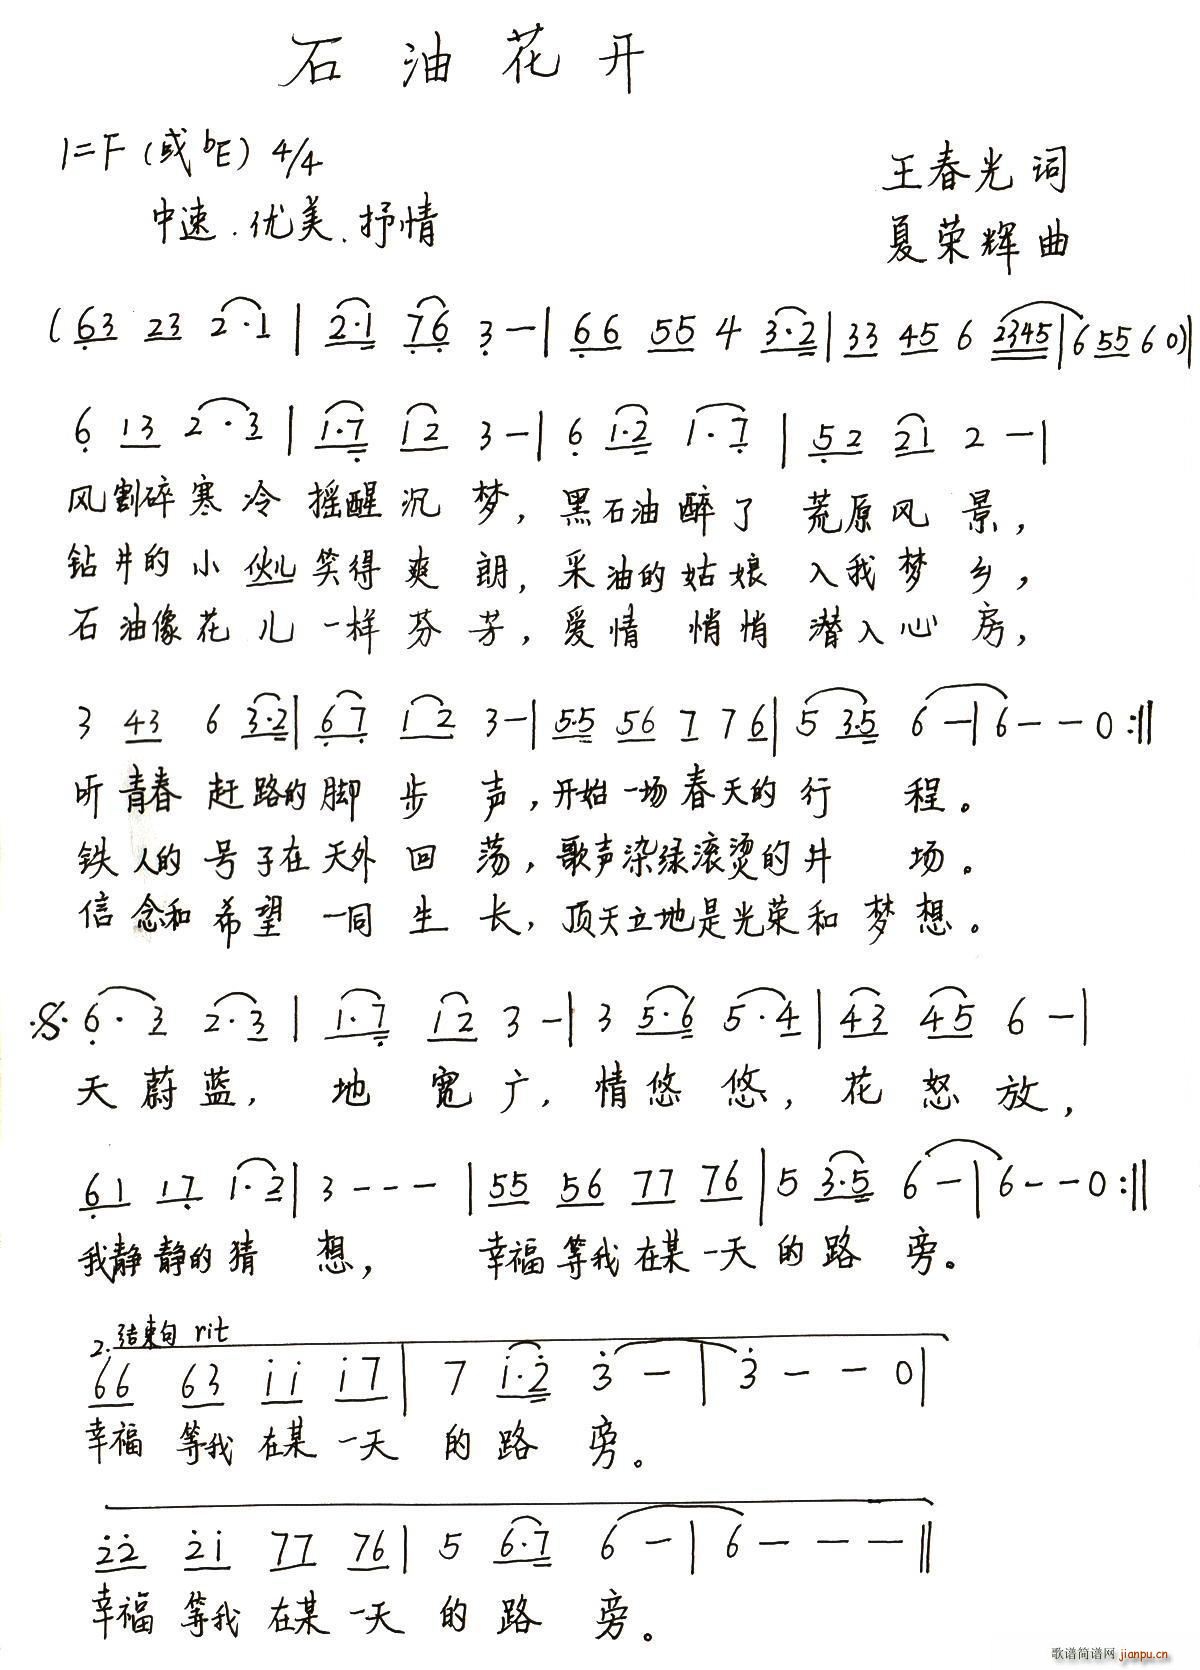 石油花开
1=F(或bE) 4/4
王春光 词
中速.优美、抒情
夏荣辉 曲
(63 23 2·1 | 2·1 76 3 — | 66 55 4 3·2 | 33 45 6 2345 | 6 55 6 0) |
6 13 2·3 | 1·7 12 3 — | 6 1·2 1·7 | 52 21 2 — |
风割碎寒冷摇醒沉梦,黑石油醉了荒原风景,
钻井的小伙儿笑得爽朗,采油的姑娘入我梦乡,
石油像花儿一样芬芳,爱情悄悄潜入心房,
3 43 6 3·2 | 67 12 3 — | 5·5 56 7 7 6 | 5 3·5 6 — | 6 — — 0 :||
听青春赶路的脚步声,开始一场春天的行程。
铁人的号子在天外回荡,歌声染绿滚烫的井场。
信念和希望一同生长,顶天立地是光荣和梦想。
6·3 2·3 | 1·7 12 3 — | 3 5·6 5·4 | 43 45 6 — |
天蔚蓝,地宽广,情悠悠,花怒放,
61 17 1·2 | 3 - - - | 55 56 77 76 | 5 3·5 6 — | 6 — — 0 :||
我静静的猜想,幸福等我在某一天的路旁。
2.结束句 rit
66 63 ii i7 | 7 i·2 3 — | 3 — — 0 |
幸福等我在某一天的路旁。
22 2i 77 76 | 5 6·7 6 — | 6 — — — ||
幸福等我在某一天的路旁。
歌谱简谱网
jianpu.cn